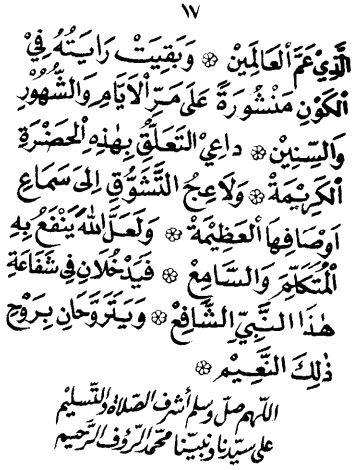 ١٧
الَّذِيْ عَمَّ الْعَالَمِيْنَ ۞ وَبَقِيَتْ رَايَتُهُ فِيْ
الْكَوْنِ مَنْشُورَةً عَلَى مَرِّ الْاَيَّامِ وَالشُّهُوْرِ
وَالسِّنِيْنَ ۞ دَاعِيْ التَّعَلُّقِ بِهٰذِهِ الْحَضْرَةِ
الْكَرِيْمَةْ ۞ وَلَاعِجُ التَّشَوُّقِ اِلَى سَمَاعِ
اَوْصَافِهَا الْعَظِيْمَةْ ۞ وَلَعَلَّ اللهَ يَنْفَعُ بِهِ
الْمُتَكَلِّمَ وَالسَّامِعْ ۞ فَيَدْخُلَانِ فِيْ شَفَاعَةِ
هٰذَا النَّبِيِّ الشَّافِعْ ۞ وَيَتَرَوَّحَانِ بِرَوْحِ
ذٰلِكَ النَّعِيْمْ ۞
اللهم صلّ وسلم أشرف الصلاة والتسليم
على سيّدنا ونبيّنا محمد الرّؤوف الرّحيم